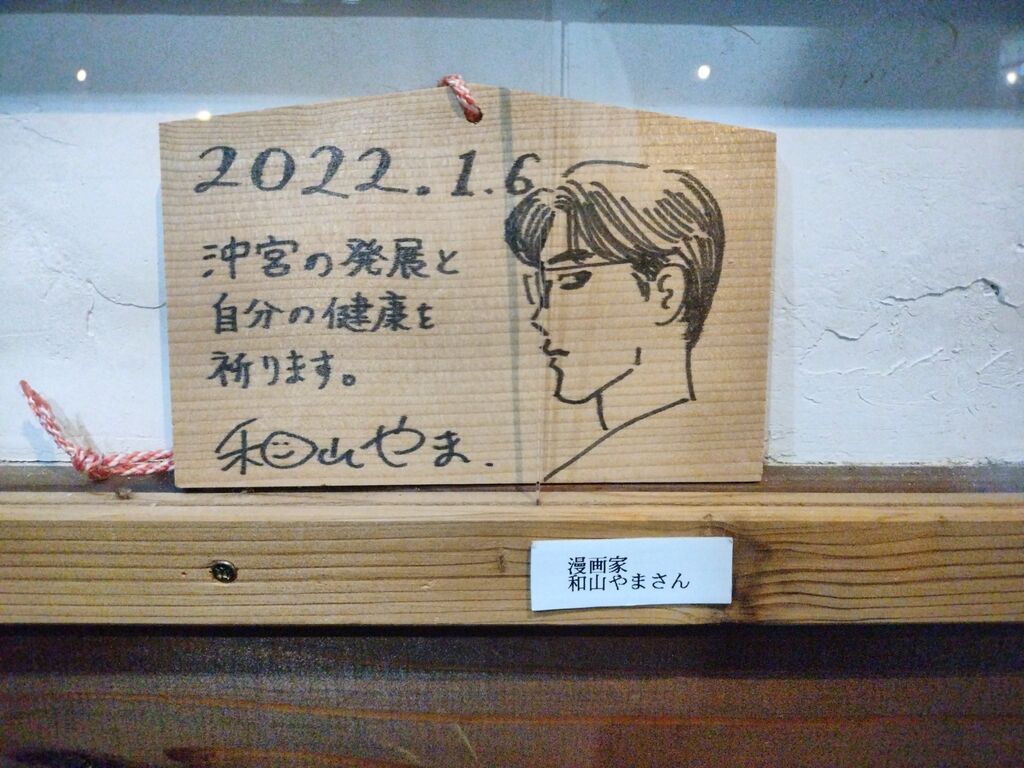 2022.1.6
沖宮の発展と
自分の健康を
祈ります。
和山やま.
漫画家
和山やまさん